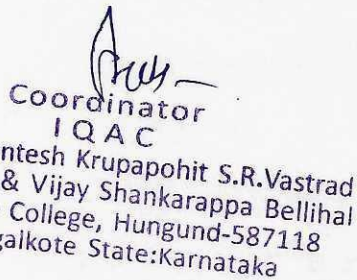 Coordinator
I Q A C
ntesh Krupapohit S.R.Vastrad
& Vijay Shankarappa Bellihal
College, Hungund-587118
galkote State:Karnataka